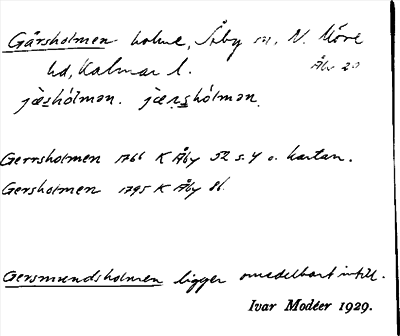 Gårsholmen holme, Åby sn, N. Möre
hd, Kalmar l. Åby 20
jæsholmən. jærsholmən.
Gerrsholmen 1766 K Åby 52 s. 4 o. kartan.
Gersholmen 1795 K Åby 8
Gersmundsholmen ligger omedelbart intill.
Ivar Modéer 1929.